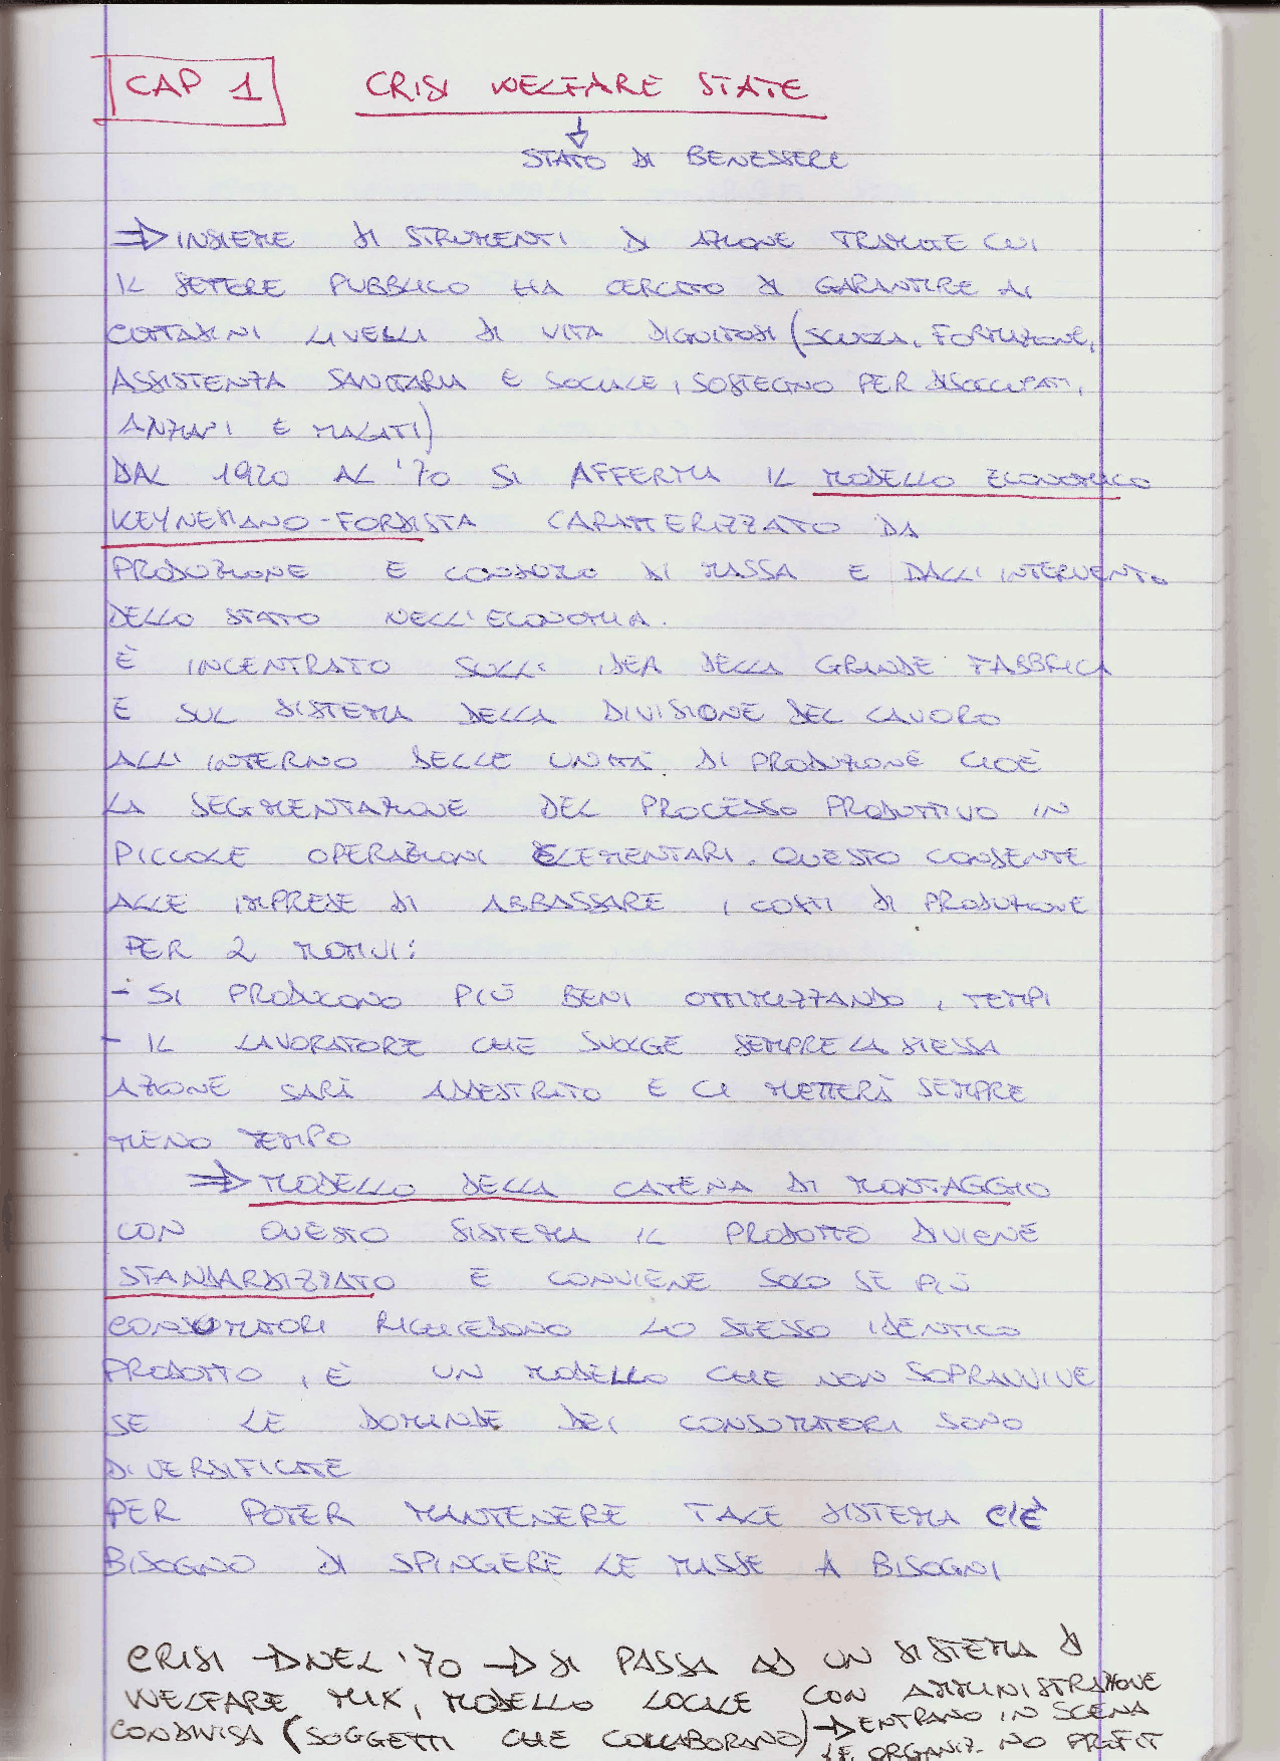 CAP 1 CRISI WELFARE STATE
STATO DI BENESSERE
⇒ INSIEME DI STRUMENTI DI AZIONE TRAMITE CUI
IL SETTERE PUBBLICO HA CERCATO DI GARANTIRE AI
CITTADINI LIVELLI DI VITA DIGNITOSI (SCUOLA, FORMAZIONE,
ASSISTENZA SANITARIA E SOCIALE, SOSTEGNO PER DISOCCUPATI,
ANZIANI E MALATI)
DAL 1920 AL '70 SI AFFERMA IL MODELLO ECONOMICO
KEYNESIANO-FORDISTA CARATTERIZZATO DA
PRODUZIONE E CONSUMO DI MASSA E DALL'INTERVENTO
DELLO STATO NELL'ECONOMIA.
È INCENTRATO SULL'IDEA DELLA GRANDE FABBRICA
E SUL SISTEMA DELLA DIVISIONE DEL LAVORO
ALL'INTERNO DELLE UNITÀ DI PRODUZIONE CIOÈ
LA SEGMENTAZIONE DEL PROCESSO PRODUTTIVO IN
PICCOLE OPERAZIONI ELEMENTARI. QUESTO CONSENTE
ALLE IMPRESE DI ABBASSARE I COSTI DI PRODUZIONE
PER 2 MOTIVI:
- SI PRODUCONO PIÙ BENI OTTIMIZZANDO I TEMPI
- IL LAVORATORE CHE SVOLGE SEMPRE LA STESSA
AZIONE SARÀ ADDESTRATO E CI METTERÀ SEMPRE
MENO TEMPO
⇒ MODELLO DELLA CATENA DI MONTAGGIO
CON QUESTO SISTEMA IL PRODOTTO DIVIENE
STANDARDIZZATO E CONVIENE SOLO SE PIÙ
CONSUMATORI RICHIEDONO LO STESSO IDENTICO
PRODOTTO, È UN MODELLO CHE NON SOPRAVVIVE
SE LE DOMANDE DEI CONSUMATORI SONO
DIVERSIFICATE
PER POTER MANTENERE TALE SISTEMA C'È
BISOGNO DI SPINGERE LE MASSE A BISOGNI
CRISI → NEL '70 → SI PASSA AD UN SISTEMA DI
WELFARE MIX, MODELLO LOCALE CON AMMINISTRAZIONE
CONDIVISA (SOGGETTI CHE COLLABORANO) → ENTRANO IN SCENA
LE ORGANIZ. NO PROFIT